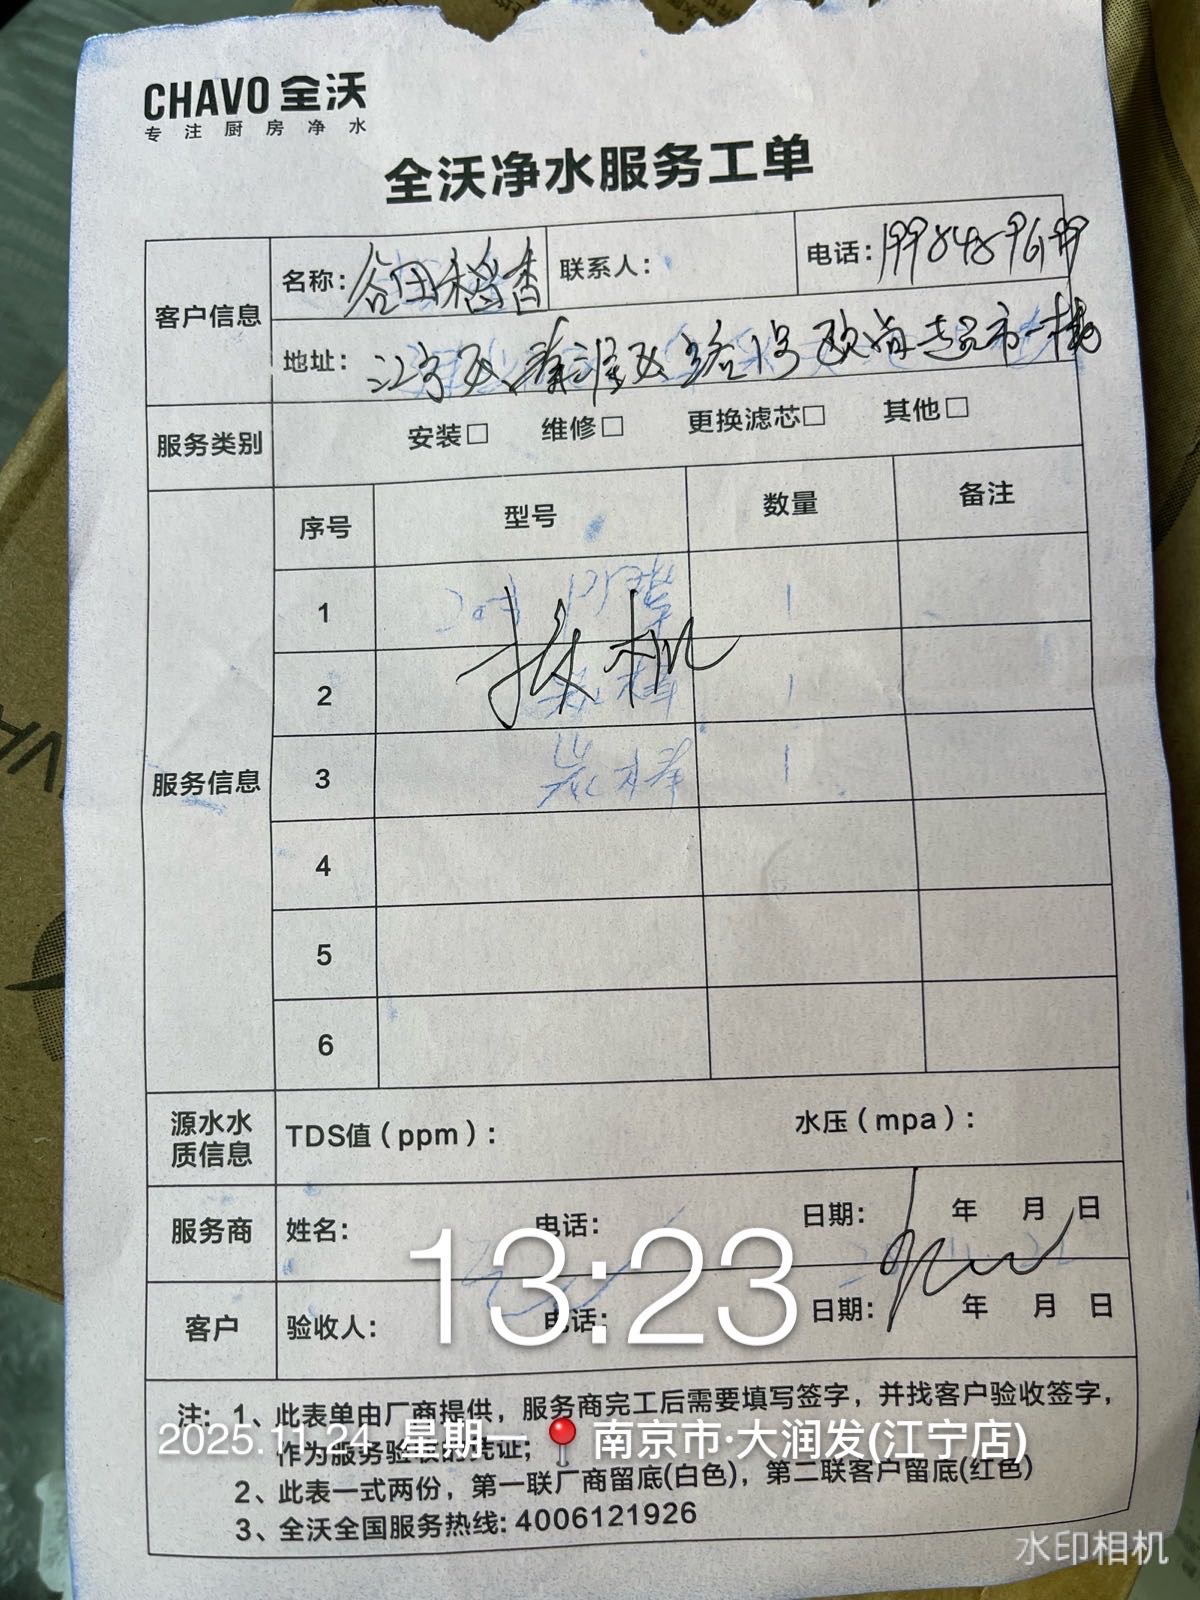 CHAVO 全沃
专注厨房净水
全沃净水服务工单
客户信息 名称：谷田稻香 联系人： 电话：
地址：江宁区秦淮区路1号欧尚超市一楼
服务类别 安装□ 维修□ 更换滤芯□ 其他□
服务信息 序号 型号 数量 备注
1 1
拆机
2 1
3 炭棒 1
4
5
6
源水水质信息 TDS值（ppm）： 水压（mpa）：
服务商 姓名： 电话： 日期： 年 月 日
13:23
客户 验收人： 电话： 日期： 年 月 日
注：1、此表单由厂商提供，服务商完工后需要填写签字，并找客户验收签字，
作为服务验收的凭证；
2025.11.24 星期一 📍南京市·大润发(江宁店)
2、此表一式两份，第一联厂商留底(白色)，第二联客户留底(红色)
3、全沃全国服务热线：4006121926
水印相机